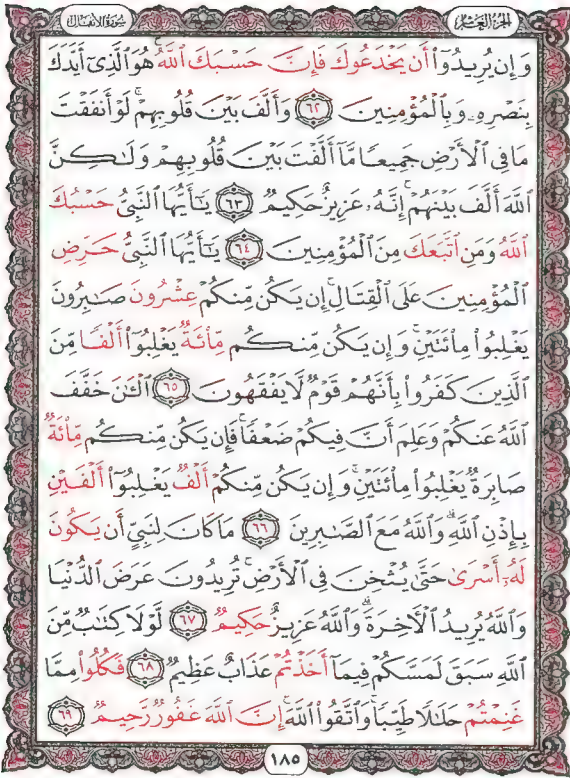 الجزء العاشر
سورة الأنفال
وَإِن يُرِيدُوٓا۟ أَن يَخْدَعُوكَ فَإِنَّ حَسْبَكَ ٱللَّهُ هُوَ ٱلَّذِىٓ أَيَّدَكَ
بِنَصْرِهِۦ وَبِٱلْمُؤْمِنِينَ ٦٢ وَأَلَّفَ بَيْنَ قُلُوبِهِمْ ۚ لَوْ أَنفَقْتَ
مَا فِى ٱلْأَرْضِ جَمِيعًا مَّآ أَلَّفْتَ بَيْنَ قُلُوبِهِمْ وَلَـٰكِنَّ
ٱللَّهَ أَلَّفَ بَيْنَهُمْ ۚ إِنَّهُۥ عَزِيزٌ حَكِيمٌ ٦٣ يَـٰٓأَيُّهَا ٱلنَّبِىُّ حَسْبُكَ
ٱللَّهُ وَمَنِ ٱتَّبَعَكَ مِنَ ٱلْمُؤْمِنِينَ ٦٤ يَـٰٓأَيُّهَا ٱلنَّبِىُّ حَرِّضِ
ٱلْمُؤْمِنِينَ عَلَى ٱلْقِتَالِ ۚ إِن يَكُن مِّنكُمْ عِشْرُونَ صَـٰبِرُونَ
يَغْلِبُوا۟ مِا۟ئَتَيْنِ ۚ وَإِن يَكُن مِّنكُم مِّا۟ئَةٌ يَغْلِبُوٓا۟ أَلْفًا مِّنَ
ٱلَّذِينَ كَفَرُوا۟ بِأَنَّهُمْ قَوْمٌ لَّا يَفْقَهُونَ ٦٥ ٱلْـَٔـٰنَ خَفَّفَ
ٱللَّهُ عَنكُمْ وَعَلِمَ أَنَّ فِيكُمْ ضَعْفًا ۚ فَإِن يَكُن مِّنكُم مِّا۟ئَةٌ
صَابِرَةٌ يَغْلِبُوا۟ مِا۟ئَتَيْنِ ۚ وَإِن يَكُن مِّنكُمْ أَلْفٌ يَغْلِبُوٓا۟ أَلْفَيْنِ
بِإِذْنِ ٱللَّهِ ۗ وَٱللَّهُ مَعَ ٱلصَّـٰبِرِينَ ٦٦ مَا كَانَ لِنَبِىٍّ أَن يَكُونَ
لَهُۥٓ أَسْرَىٰ حَتَّىٰ يُثْخِنَ فِى ٱلْأَرْضِ ۚ تُرِيدُونَ عَرَضَ ٱلدُّنْيَا
وَٱللَّهُ يُرِيدُ ٱلْـَٔاخِرَةَ ۗ وَٱللَّهُ عَزِيزٌ حَكِيمٌ ٦٧ لَّوْلَا كِتَـٰبٌ مِّنَ
ٱللَّهِ سَبَقَ لَمَسَّكُمْ فِيمَآ أَخَذْتُمْ عَذَابٌ عَظِيمٌ ٦٨ فَكُلُوا۟ مِمَّا
غَنِمْتُمْ حَلَـٰلًا طَيِّبًا ۚ وَٱتَّقُوا۟ ٱللَّهَ ۚ إِنَّ ٱللَّهَ غَفُورٌ رَّحِيمٌ ٦٩
١٨٥